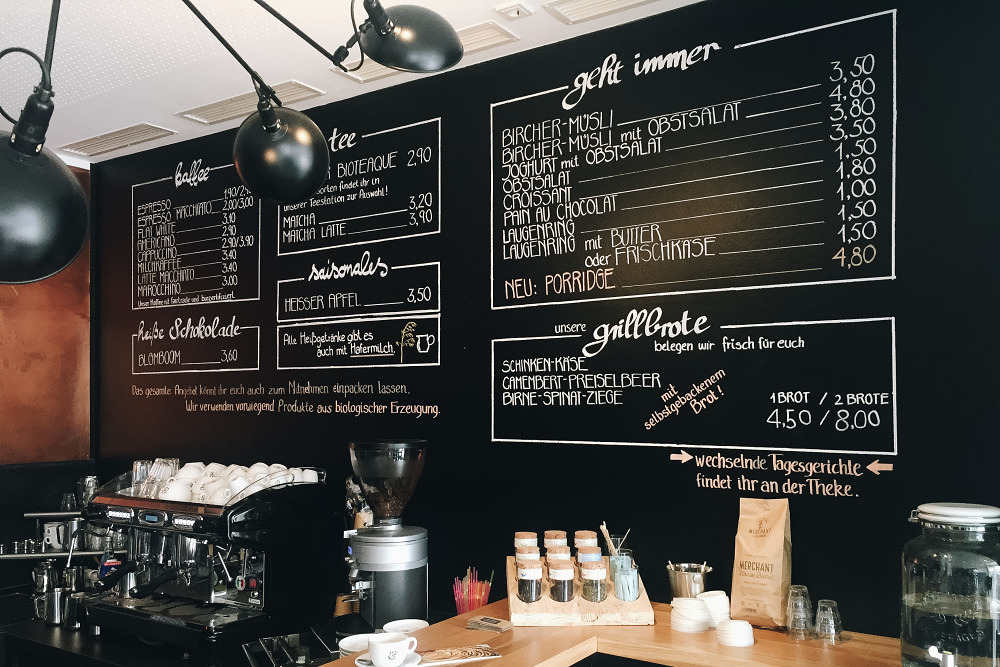 kaffee
ESPRESSO 1,90/2,90
ESPRESSO MACCHIATO 2,00/3,00
FLAT WHITE 3,10
AMERICANO 2,90
CAPPUCCINO 2,90/3,90
MILCHKAFFEE 3,40
LATTE MACCHIATO 3,40
MAROCCHINO 3,00
Unser Kaffee ist Fairtrade und biozertifiziert.
heiße Schokolade
BLOMBOOM 3,60
tee
BIOTEAQUE 2,90
findet ihr in
unserer Teestation zur Auswahl!
MATCHA 3,20
MATCHA LATTE 3,90
saisonales
HEISSER APFEL 3,50
Alle Heißgetränke gibt es
auch mit Hafermilch.
Das gesamte Angebot könnt ihr euch auch zum Mitnehmen einpacken lassen.
Wir verwenden vorwiegend Produkte aus biologischer Erzeugung.
geht immer
BIRCHER-MÜSLI 3,50
BIRCHER-MÜSLI mit OBSTSALAT 4,80
JOGHURT mit OBSTSALAT 3,80
OBSTSALAT 3,50
CROISSANT 1,50
PAIN AU CHOCOLAT 1,80
LAUGENRING 1,00
LAUGENRING mit BUTTER 1,50
oder FRISCHKÄSE 1,50
NEU: PORRIDGE 4,80
unsere grillbrote
belegen wir frisch für euch
SCHINKEN-KÄSE
CAMEMBERT-PREISELBEER
BIRNE-SPINAT-ZIEGE
mit
selbstgebackenem
Brot!
1 BROT / 2 BROTE
4,50 / 8,00
wechselnde Tagesgerichte
findet ihr an der Theke.
MERCHANT
MERCHANT